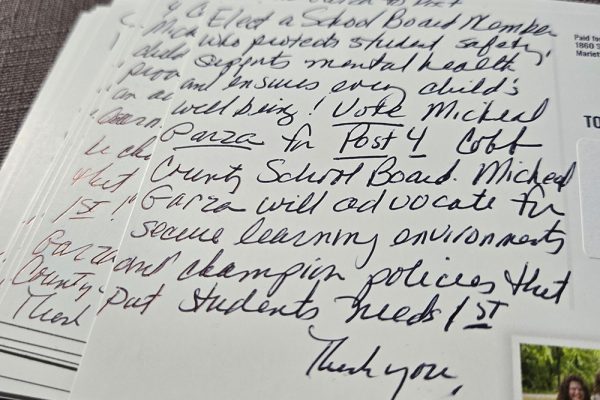 Elect a School Board Member
who protects student safety,
supports mental health
and ensures every child's
well being! Vote Micheal
Garza for Post 4 Cobb
County School Board. Micheal
Garza will advocate for
secure learning environments
and champion policies that
put students needs 1st
Thank you,
Mich
that
1st
Garza
County
Thank
Paid for
1860 S
Mariet
TO